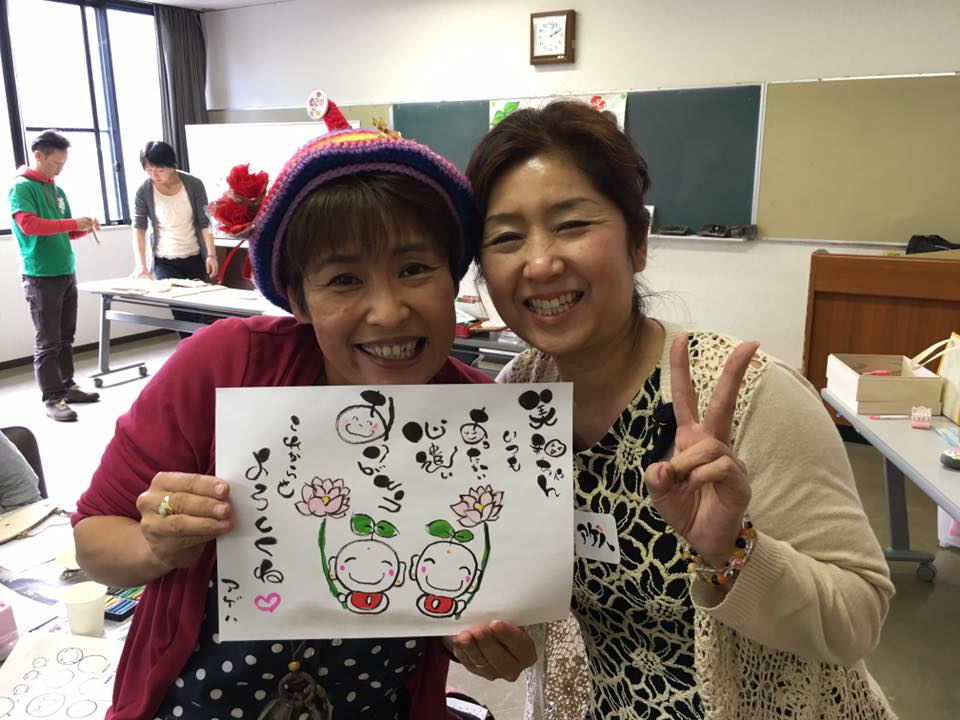 美和ちゃん
いつも
あったかい
心遣い
ありがとう
これからも
よろしくね
アゲハ